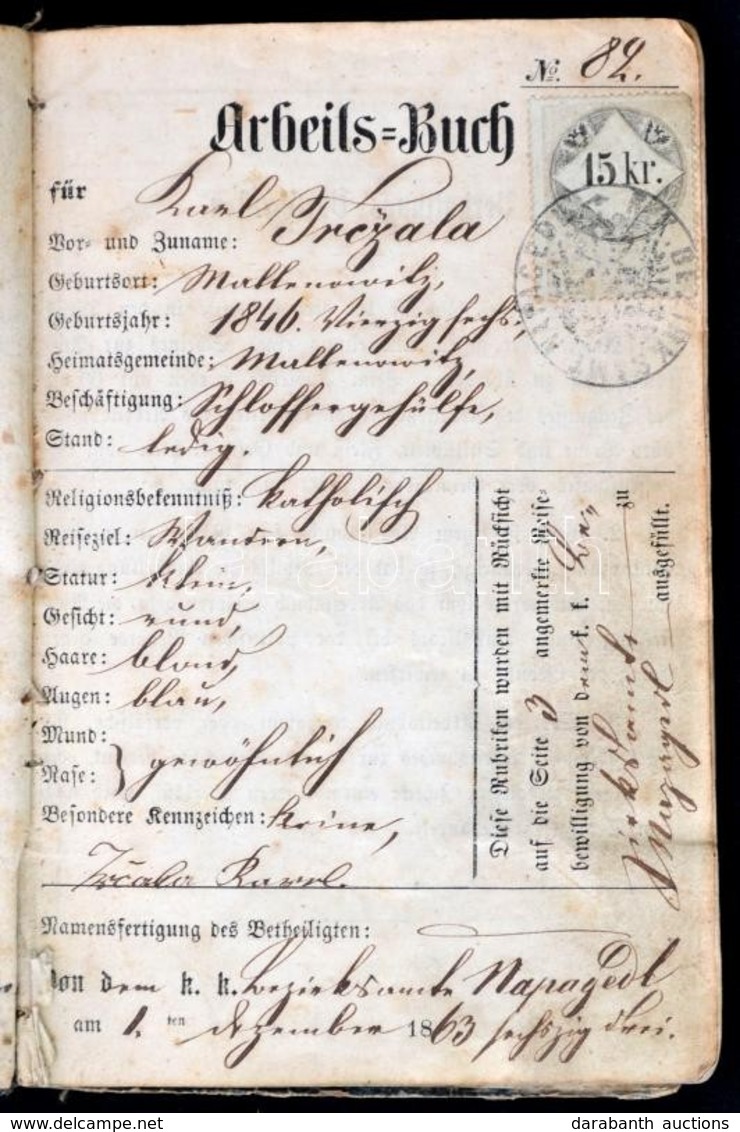 No. 82.
Arbeits=Buch
15 kr.
für Karl Trczala
Vor= und Zuname:
Geburtsort: Mallenowitz,
Geburtsjahr: 1846. Vierzig sechs,
Heimatsgemeinde: Mallenowitz,
Beschäftigung: Schlossergehülfe,
Stand: ledig.
Religionsbekenntniß: katholisch
Reiseziel: Wandern,
Statur: klein,
Gesicht: rund,
Haare: blond,
Augen: blau,
Mund:
Nase: } gewöhnlich
Besondere Kennzeichen: keine,
Trčala Karel.
Diese Rubriken wurden mit Rücksicht
auf die Seite 3 angemerkte Reise=
bewilligung von dem k. k. Be=
zirksamte zu
Napagedl ausgefüllt.
Namensfertigung des Betheiligten:
Von dem k. k. Bezirksamte Napagedl
am 1. ten Dezember 1863 sechszig drei.
darabanth
www.delcampe.net
darabanth auctions